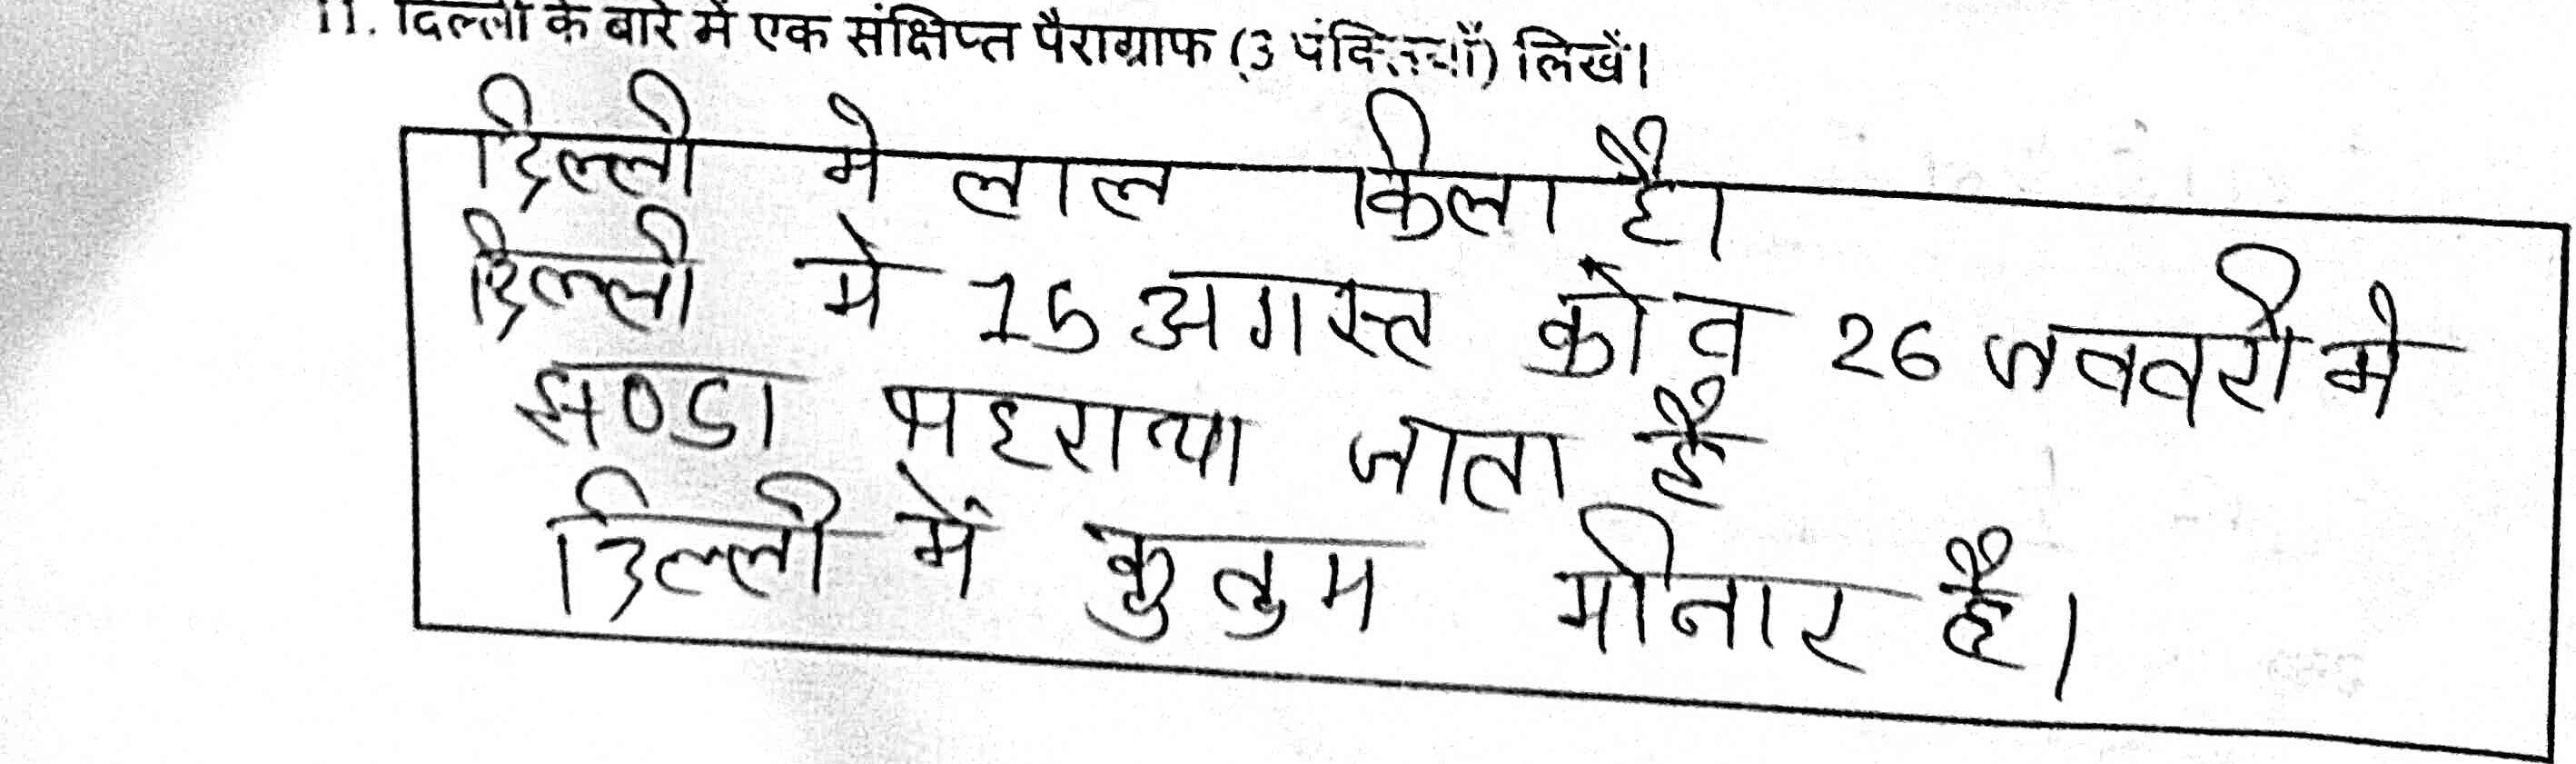 11. दिल्ली के बारे में एक संक्षिप्त पैराग्राफ (3 पंक्तियाँ) लिखें।
दिल्ली मे लाल किला है।
दिल्ली मे 15 अगस्त को व 26 जनवरी मे
झण्डा फहराया जाता है
दिल्ली में कुतुम मीनार है।